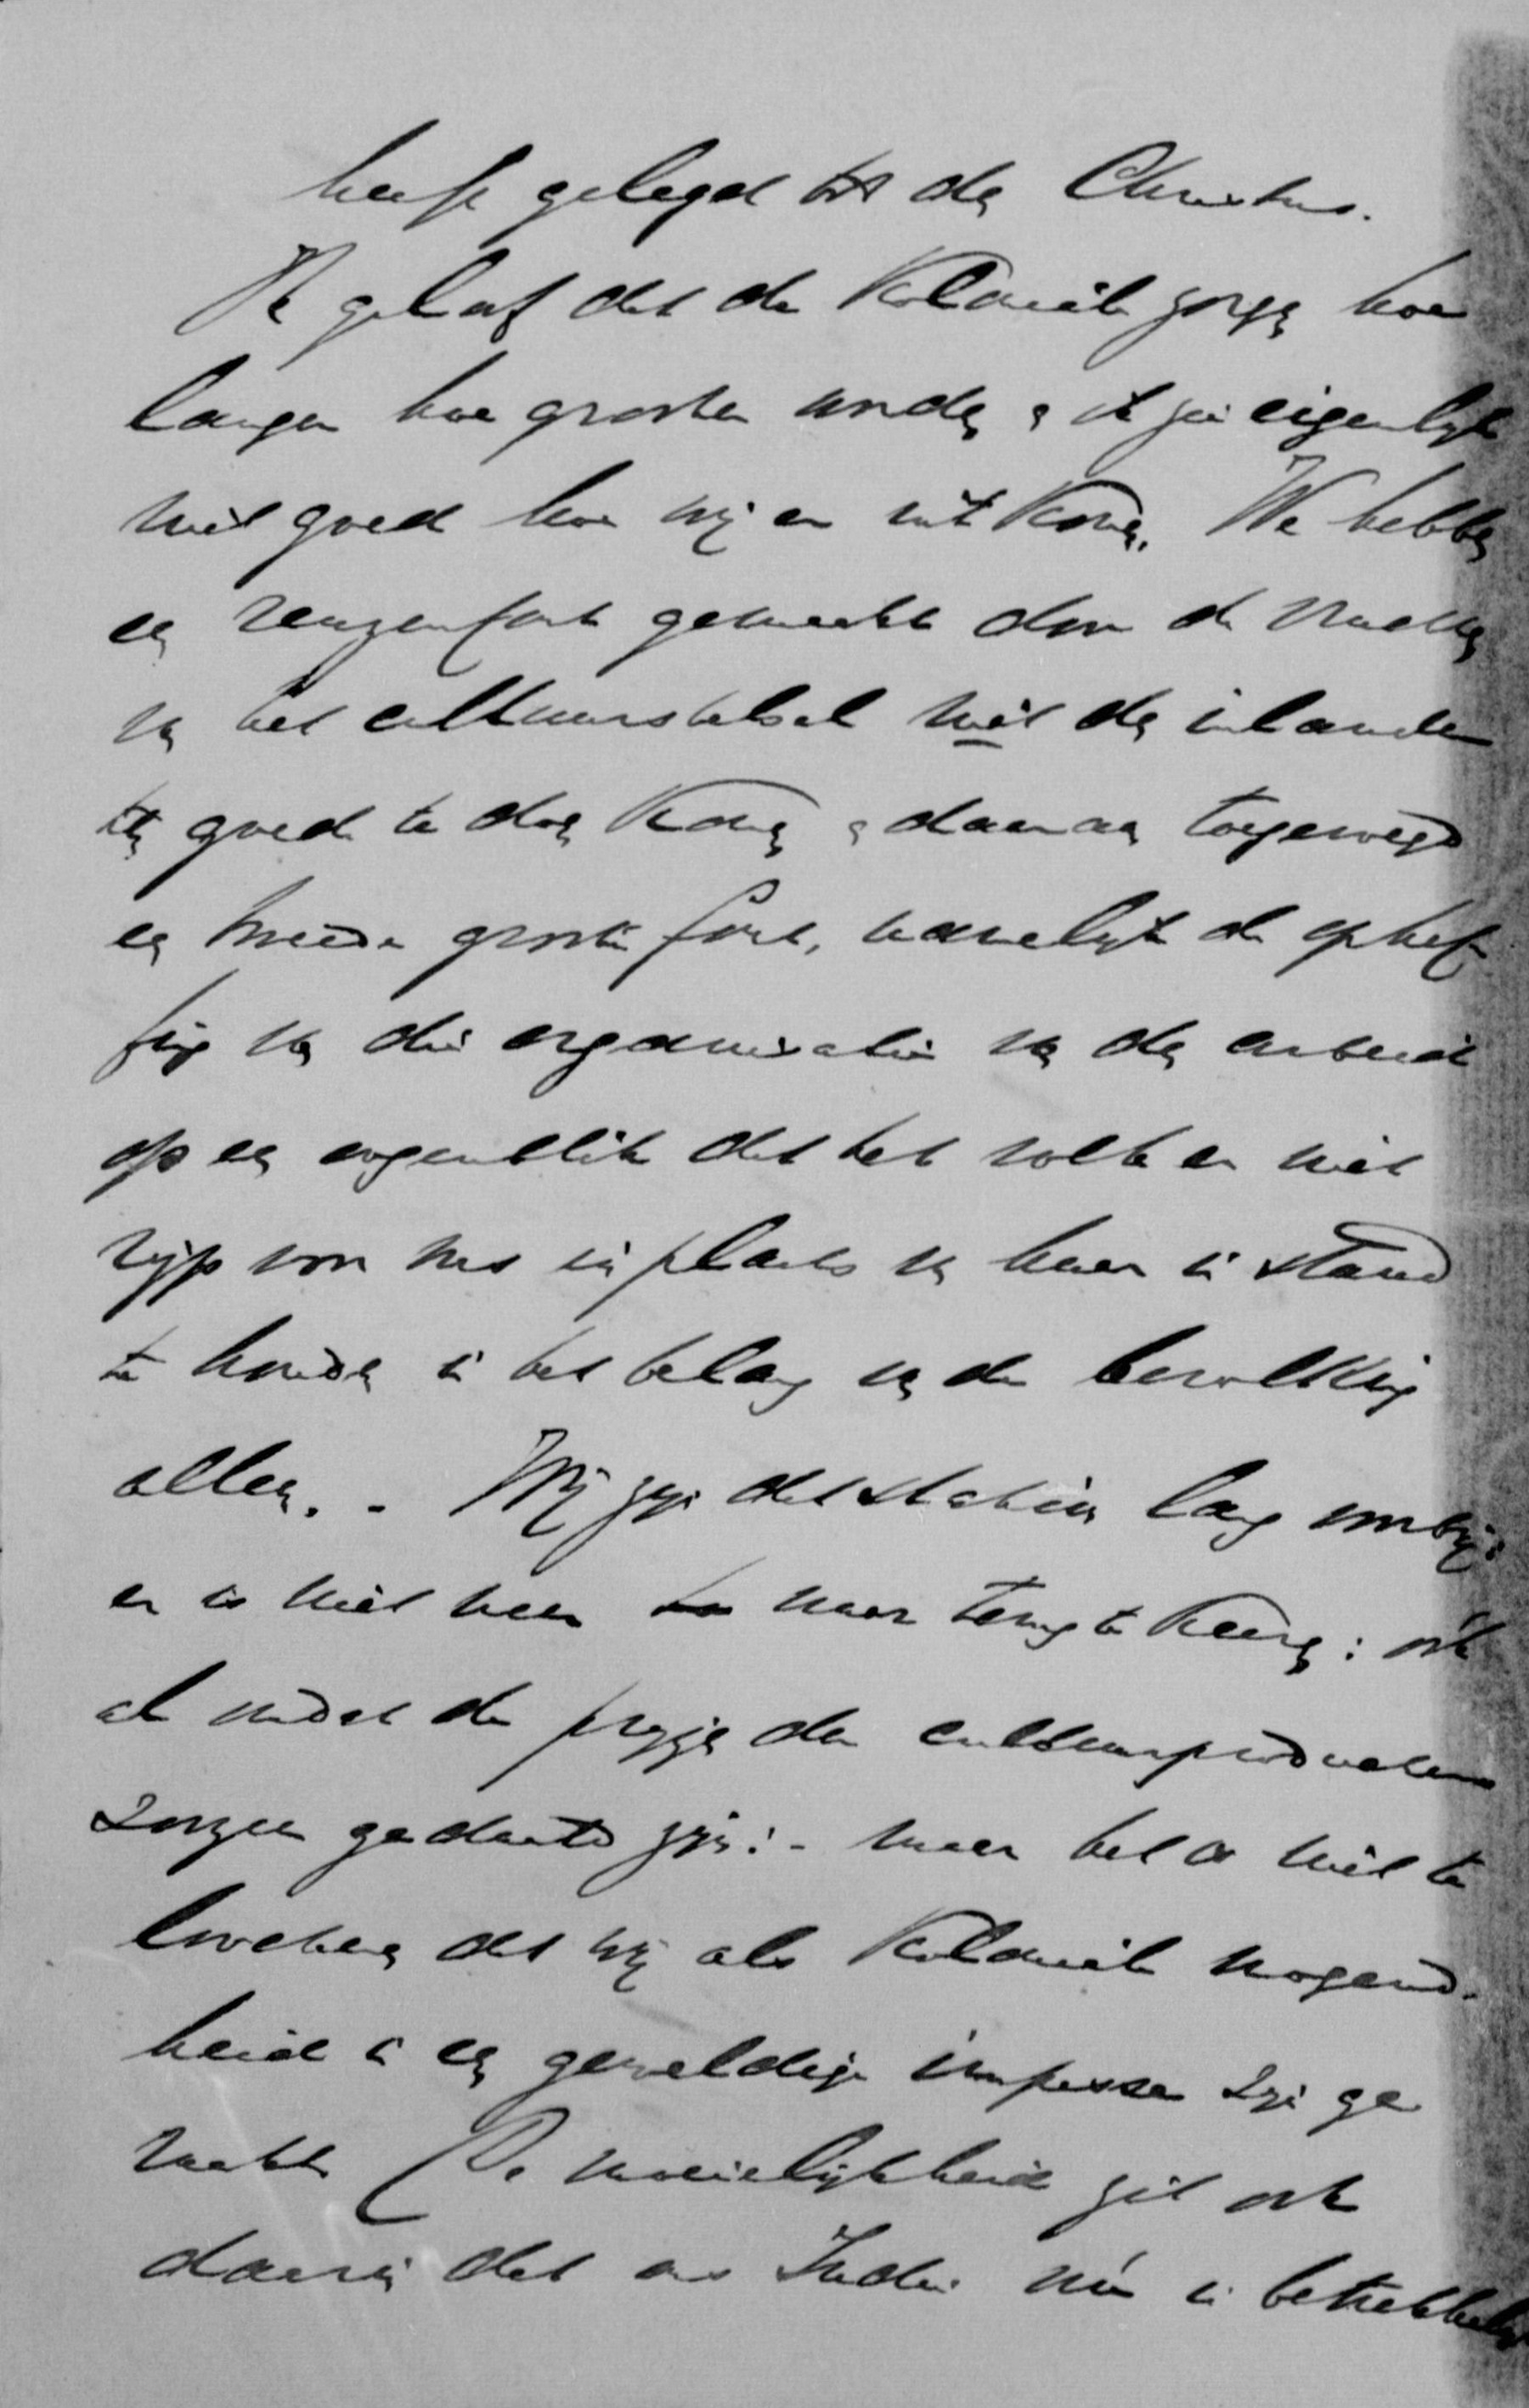 heeft gelegd tot den Christus.
Ik geloof dat de koloniale zorgen hoe
langer hoe grooter worden en ik zie eigenlijk
niet goed hoe wij er uit komen. We hebben
een reuzenfout gemaakt door de vruchten
van het cultuurstelsel niet den inlander
ten goede te doen komen en daaraan toegevoegd
een tweede groote fout, namelijk de ophef
fing van die organisatie van den arbeid
op een oogenblik dat het volk er niet
rijp voor was in plaats van haar in stand
te houden in het belang van de bevolking
alleen. - Wij zijn dat station lang voorbij:
er is niet meer naar terug te keeren: ook
al omdat de prijzen der cultuurproducten
zoozeer gedaald zijn: - maar het is niet te
loochenen dat wij als koloniale mogend-
heid in een geweldige impasse zijn ge
raakt. De moeielijkheid zit ook
daarin dat ons Indië nú in betrekkelijk